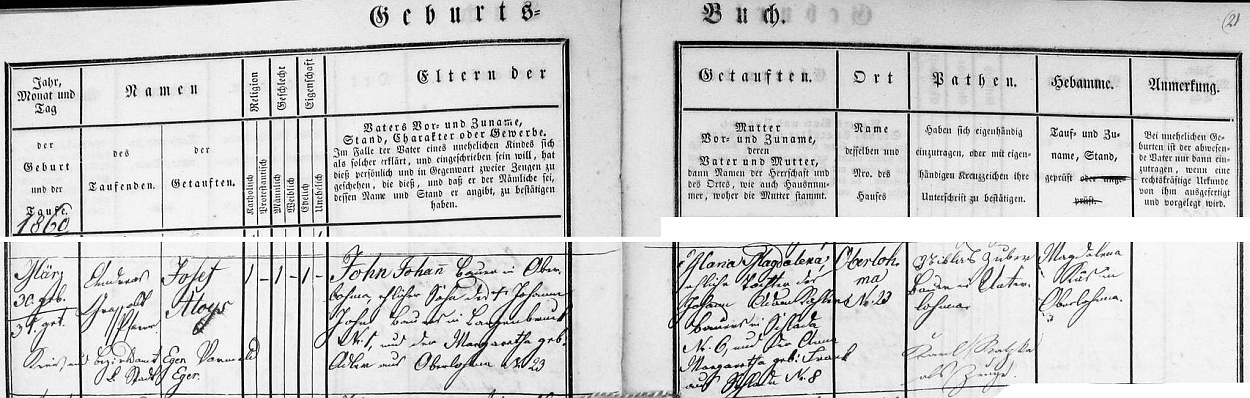 Geburts=
Buch.
(2)
Jahr,
Monat und
Tag
der
Geburt
und der
Taufe.
1860
Namen
des
Taufenden.
der
Getauften.
Religion
Katholisch
Protestantisch
Geschlecht
Männlich
Weiblich
Eigenschaft
Ehelich
Unehelich
Eltern der
Vaters Vor- und Zuname,
Stand, Charakter oder Gewerbe.
Im Falle ter Vater eines unehelichen Kindes sich
als solcher erklärt, und eingeschrieben sein will, hat
dieß persönlich und in Gegenwart zweier Zeugen zu
geschehen, die dieß, und daß er der Männliche sei,
dessen Name und Stand er angibt, zu bestätigen
haben.
Getauften.
Mutter
Vor- und Zuname,
deren
Vater und Mutter,
dann Namen der Herrschaft und
des Ortes, wie auch Hausnum-
mer, woher die Mutter stammt.
Ort
Name
desselben und
Nro. des
Hauses
Pathen.
Haben sich eigenhändig
einzutragen, oder mit eigen-
händigen Kreuzzeichen ihre
Unterschrift zu bestätigen.
Hebamme.
Tauf- und Zu-
name, Stand,
geprüft oder unge-
prüft.
Anmerkung.
Bei unehelichen Ge-
burten ist der abwesen-
de Vater nur dann ein-
zutragen, wenn eine
rechtskräftige Urkunde
von ihm ausgefertigt
und vorgelegt wird.
März
30. geb.
31. get.
Andreas
Pfarrer
Josef
Aloys
1 – 1 – 1 –
John Johann Bauer in Ober-
lohma, ehlicher Sohn des † Johann
John Bauers in Langenbruck
Nr. 1, und der Margaretha geb.
Adler aus Oberlohma Nr. 23
Maria Magdalena,
ehliche Tochter des
Johann Adam
Bauers in Schlada
Nr. 6, und der Anna
Margaretha geb. Frank
aus Schlada Nr. 8
Oberloh-
ma
Nr. 23
Niklas Zuber
Bauer in Unter-
lohma.
als Zeuge.
Magdalena
in
Oberlohma.
Kreis und Bezirksamt Egen
Stadt Eger.